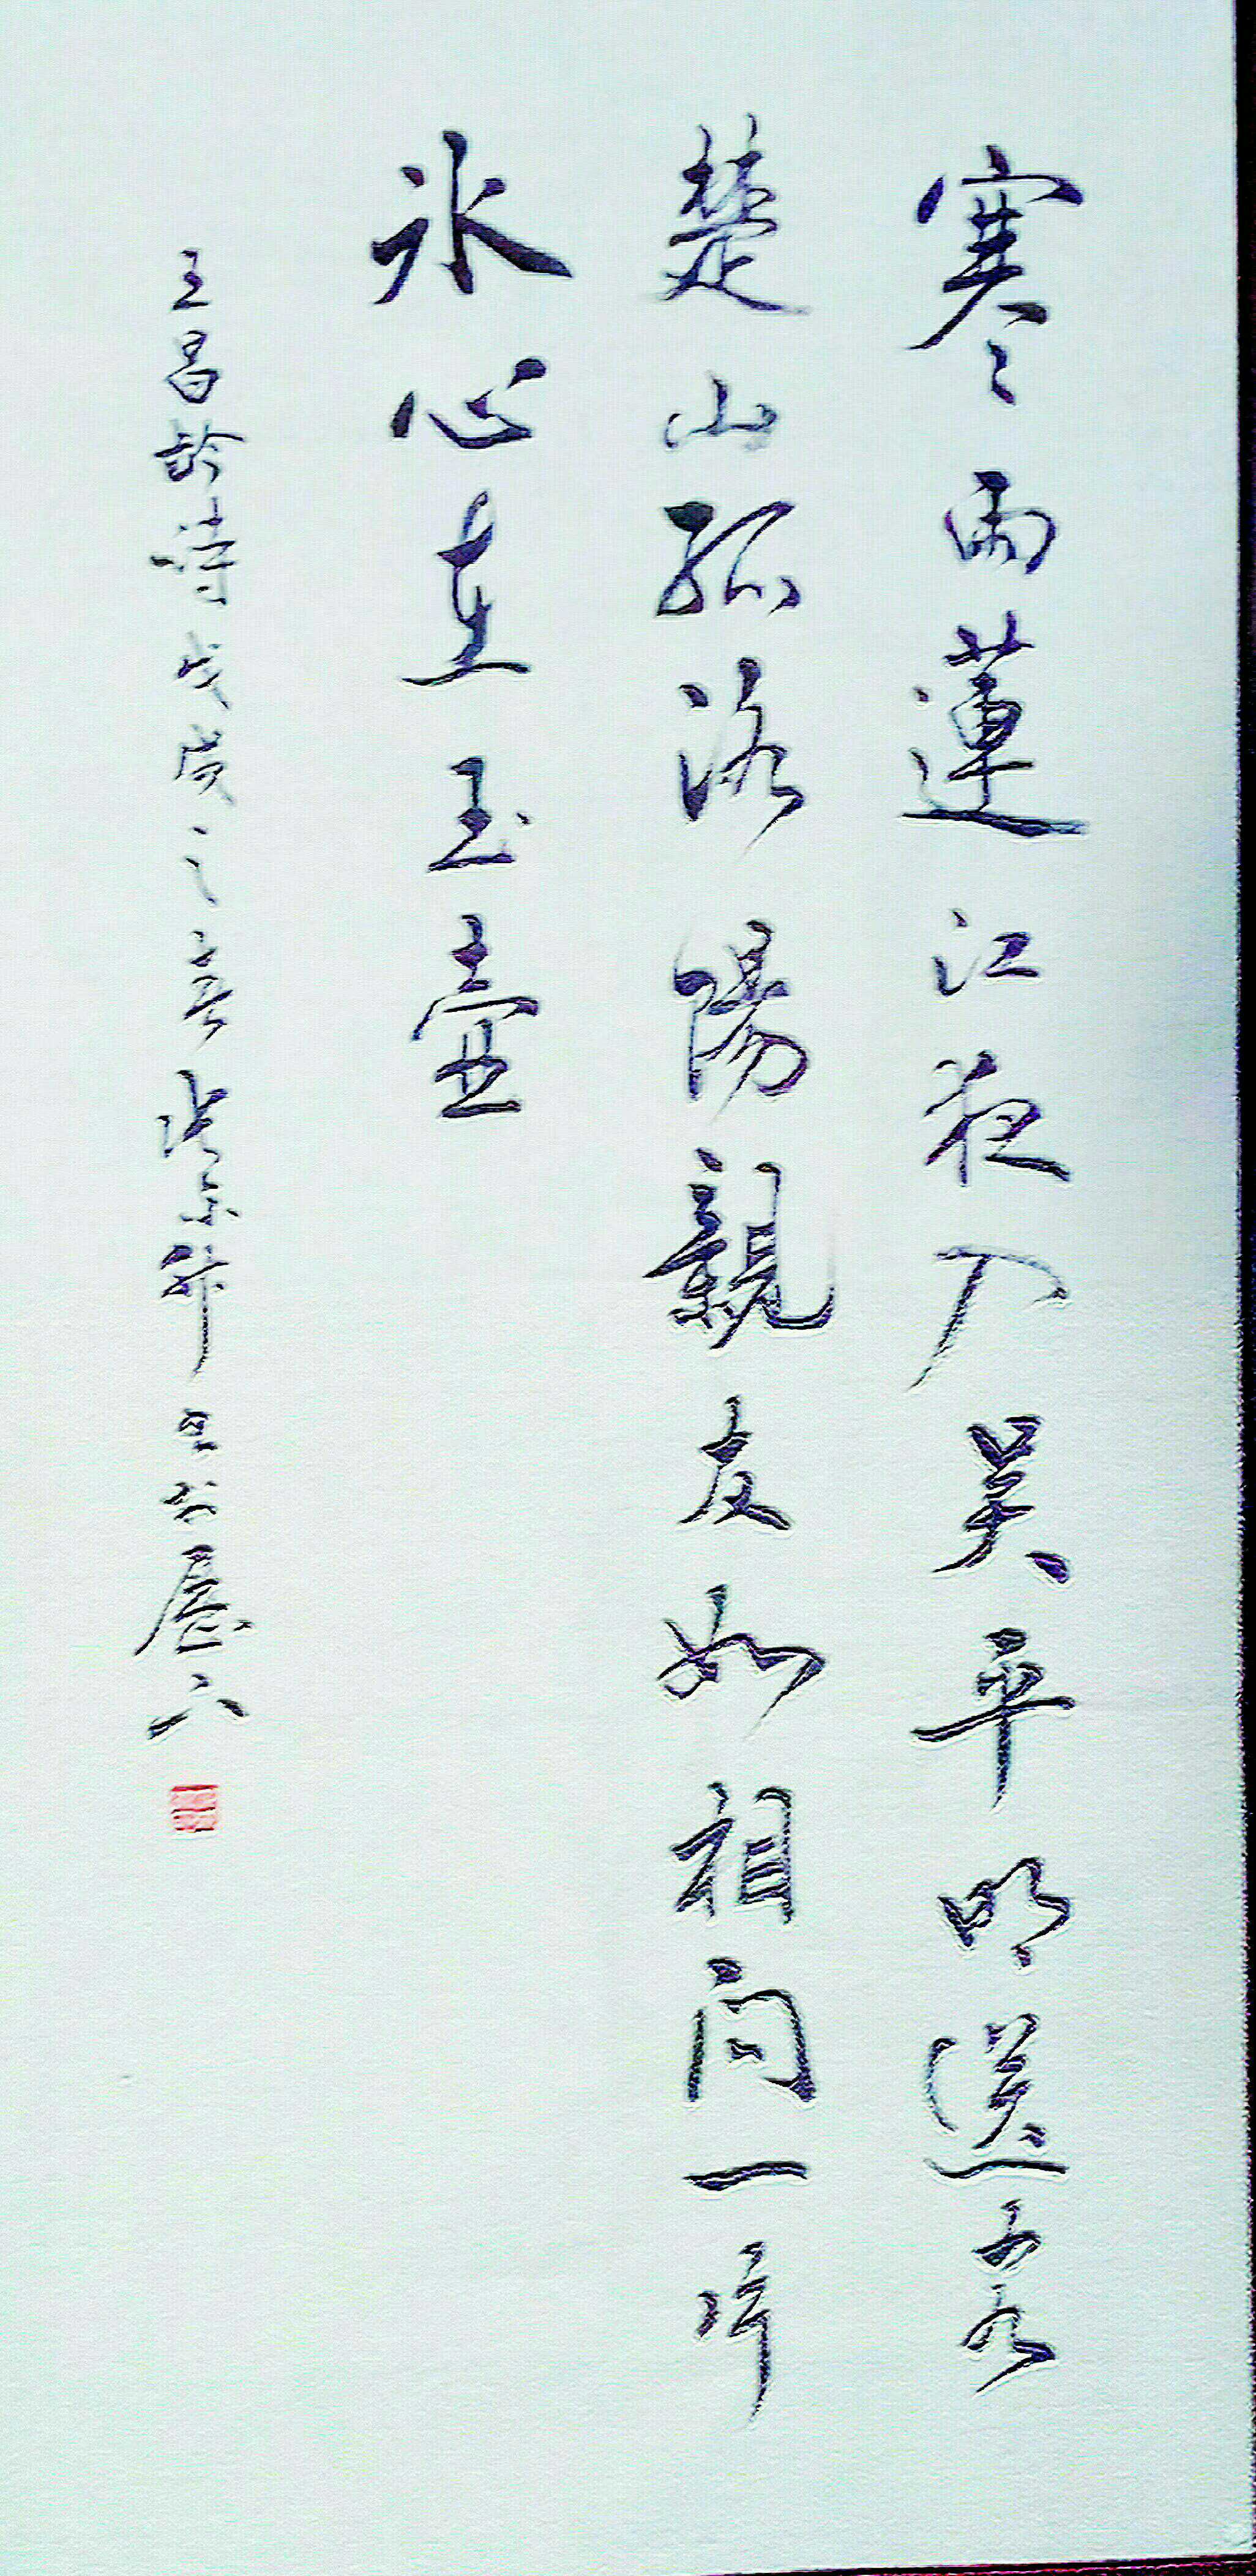 寒雨蓮江夜入吳平明送客
楚山孤洛陽親友如相問一片
冰心在玉壺
王昌齡詩戊戌之春